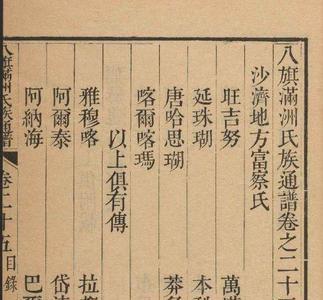 八旗滿洲氏族通譜卷之二十
沙濟地方富察氏
旺吉努 萬
延珠瑚 本
唐哈思瑚 莽
喀爾喀瑪
以上俱有傳
雅穆喀 拉
阿爾泰 岱
阿納海 巴
八旗滿洲氏族通譜 卷二十五目錄